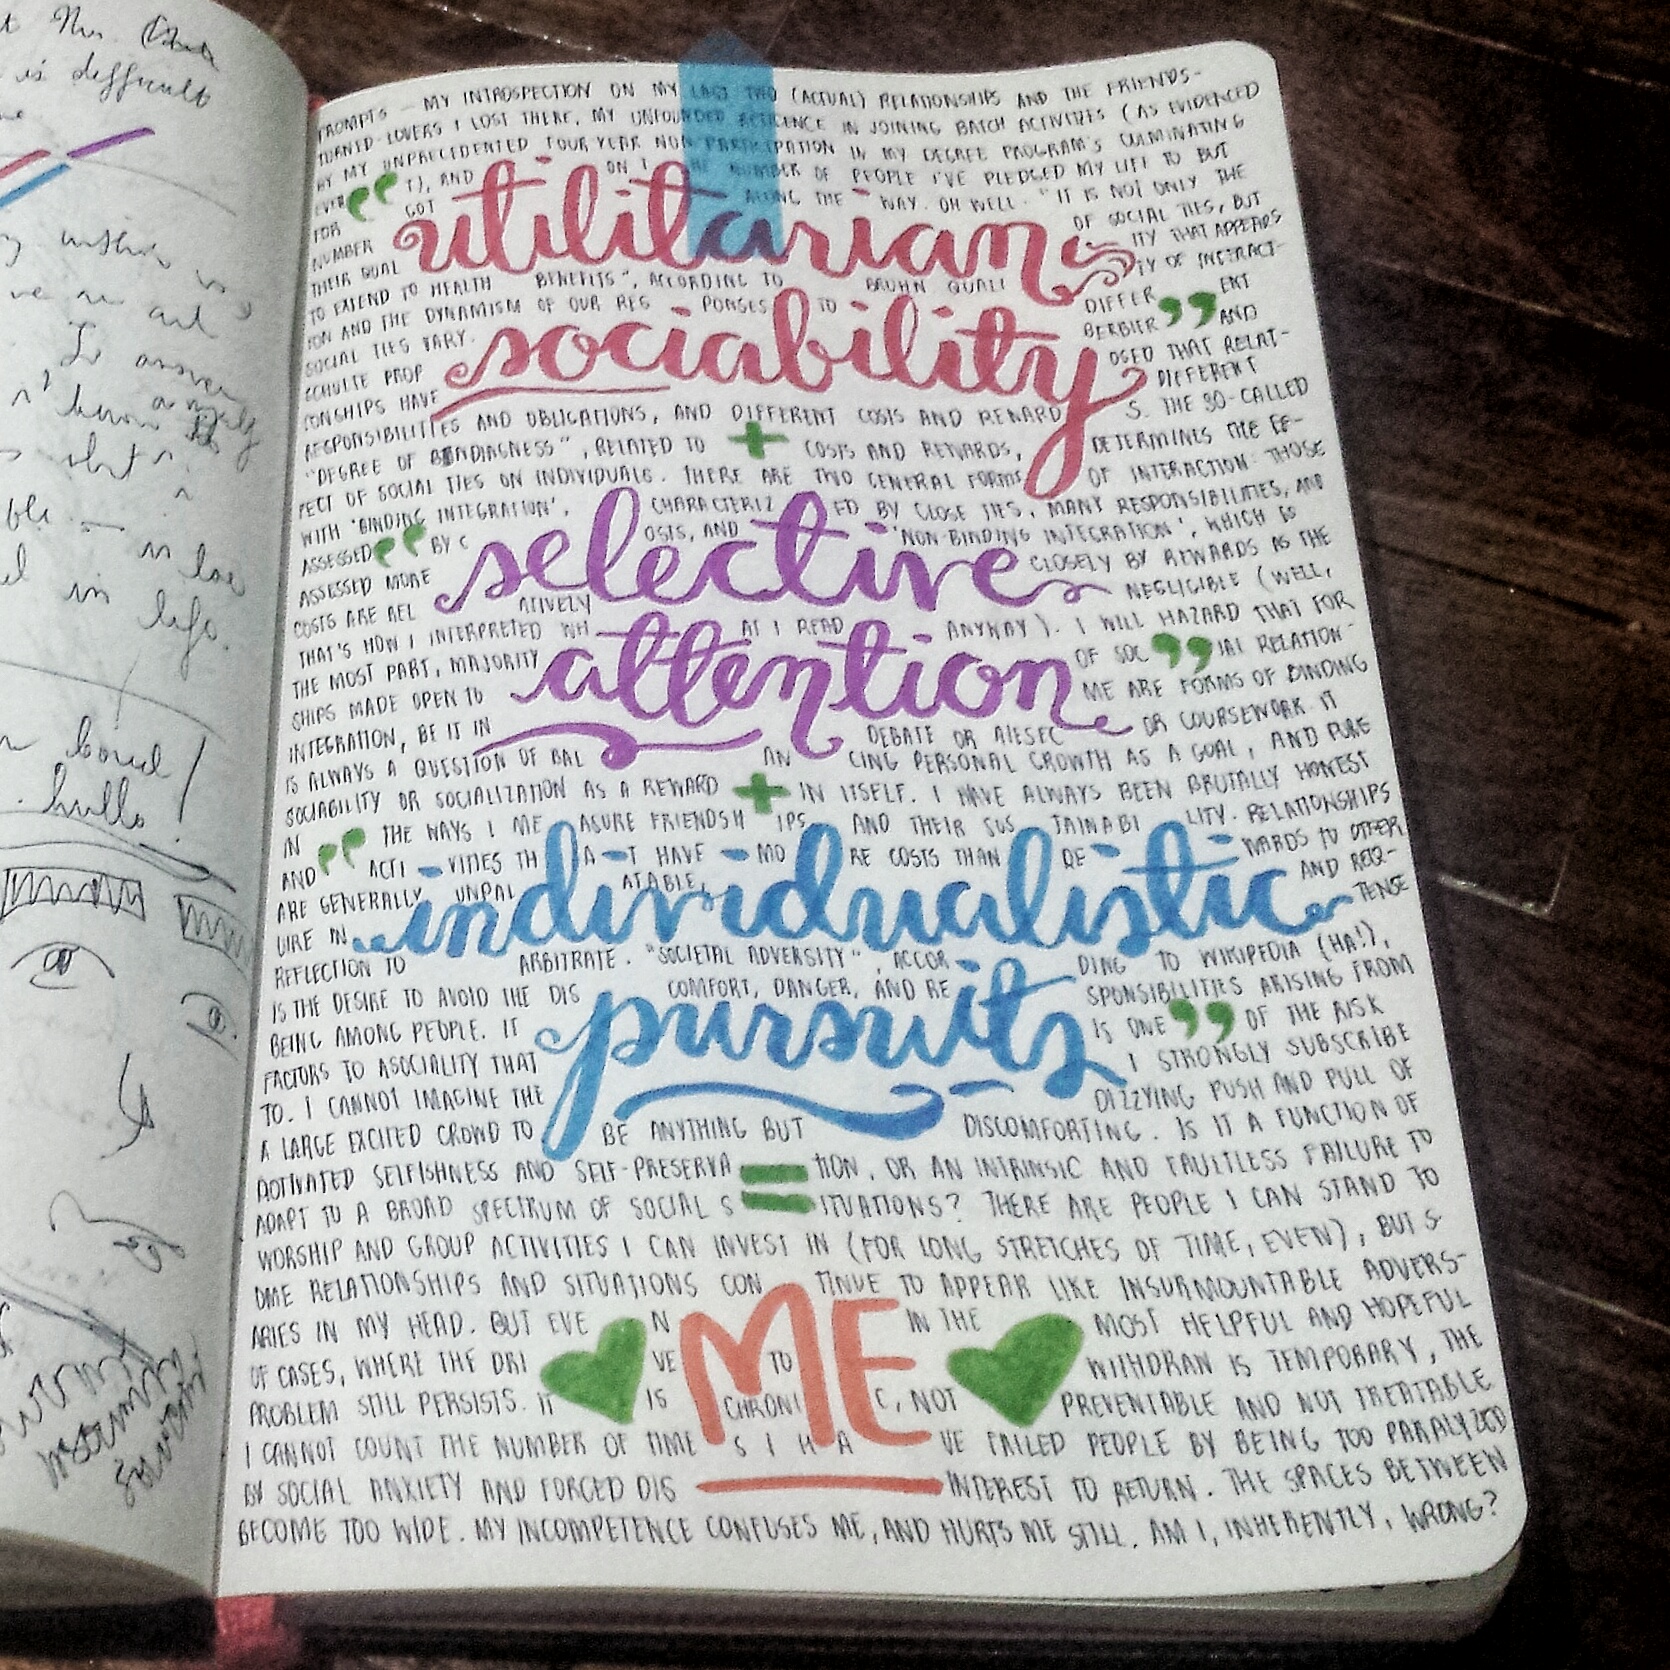 t Mrs.
is difficult
PROMPTS — MY INTROSPECTION ON MY LAST TWO (ACTUAL) RELATIONSHIPS AND THE FRIENDS-
TURNED-LOVERS I LOST THERE, MY UNFOUNDED RETICENCE IN JOINING BATCH ACTIVITIES (AS EVIDENCED
BY MY UNPRECEDENTED FOUR YEAR NON-PARTICIPATION IN MY DEGREE PROGRAM'S CULMINATING
EVER “ T), AND ON T HE NUMBER OF PEOPLE I'VE PLEDGED MY LIFE TO BUT
FOR GOT ALONG THE WAY. OH WELL. "IT IS NOT ONLY THE
utilitarian
NUMBER OF SOCIAL TIES, BUT
THEIR QUAL ITY THAT APPEARS
TO EXTEND TO HEALTH BENEFITS", ACCORDING TO BRUHN QUALI TY OF INTERACT-
ION AND THE DYNAMISM OF OUR RES PONSES TO DIFFER ENT
SOCIAL TIES VARY. BERBIER ” AND
sociability
SCHULTE PROP OSED THAT RELAT-
IONSHIPS HAVE DIFFERENT
RESPONSIBILITIES AND OBLIGATIONS, AND DIFFERENT COSTS AND REWARD S. THE SO-CALLED
"DEGREE OF BINDINGNESS", RELATED TO + COSTS AND REWARDS, DETERMINES THE EF-
FECT OF SOCIAL TIES ON INDIVIDUALS. THERE ARE TWO GENERAL FORMS OF INTERACTION: THOSE
WITH 'BINDING INTEGRATION', CHARACTERIZ ED BY CLOSE TIES, MANY RESPONSIBILITIES, AND
ASSESSED “ BY C OSTS, AND 'NON-BINDING INTEGRATION', WHICH IS
selective
ASSESSED MORE CLOSELY BY REWARDS AS THE
COSTS ARE REL ATIVELY NEGLIGIBLE (WELL,
THAT'S HOW I INTERPRETED WH AT I READ ANYWAY). I WILL HAZARD THAT FOR
attention
THE MOST PART, MAJORITY OF SOC ” IAL RELATION-
SHIPS MADE OPEN TO ME ARE FORMS OF BINDING
INTEGRATION, BE IT IN DEBATE OR AIESEC OR COURSEWORK. IT
IS ALWAYS A QUESTION OF BAL AN CING PERSONAL GROWTH AS A GOAL, AND PURE
SOCIABILITY OR SOCIALIZATION AS A REWARD + IN ITSELF. I HAVE ALWAYS BEEN BRUTALLY HONEST
IN “ THE WAYS I ME ASURE FRIENDSH IPS AND THEIR SUS TAINABI LITY. RELATIONSHIPS
AND ACTI VITIES TH A T HAVE MO RE COSTS THAN RE WARDS TO OFFER
individualistic
ARE GENERALLY UNPAL ATABLE, AND REQ-
UIRE IN TENSE
REFLECTION TO ARBITRATE. "SOCIETAL ADVERSITY", ACCOR DING TO WIKIPEDIA (HA!),
IS THE DESIRE TO AVOID THE DIS COMFORT, DANGER, AND RE SPONSIBILITIES ARISING FROM
pursuits
BEING AMONG PEOPLE. IT IS ONE ” OF THE RISK
FACTORS TO ASOCIALITY THAT I STRONGLY SUBSCRIBE
TO. I CANNOT IMAGINE THE DIZZYING PUSH AND PULL OF
A LARGE EXCITED CROWD TO BE ANYTHING BUT DISCOMFORTING. IS IT A FUNCTION OF
MOTIVATED SELFISHNESS AND SELF-PRESERVA = TION, OR AN INTRINSIC AND FAULTLESS FAILURE TO
ADAPT TO A BROAD SPECTRUM OF SOCIAL S ITUATIONS? THERE ARE PEOPLE I CAN STAND TO
WORSHIP AND GROUP ACTIVITIES I CAN INVEST IN (FOR LONG STRETCHES OF TIME, EVEN), BUT S-
OME RELATIONSHIPS AND SITUATIONS CON TINUE TO APPEAR LIKE INSURMOUNTABLE ADVERS-
ARIES IN MY HEAD. BUT EVE N IN THE MOST HELPFUL AND HOPEFUL
ME
OF CASES, WHERE THE DRI VE TO WITHDRAW IS TEMPORARY, THE
PROBLEM STILL PERSISTS. IT IS CHRONI C, NOT PREVENTABLE AND NOT TREATABLE
I CANNOT COUNT THE NUMBER OF TIME S I H A VE FAILED PEOPLE BY BEING TOO PARALYZED
BY SOCIAL ANXIETY AND FORCED DIS INTEREST TO RETURN. THE SPACES BETWEEN
BECOME TOO WIDE. MY INCOMPETENCE CONFUSES ME, AND HURTS ME STILL. AM I, INHERENTLY, WRONG?